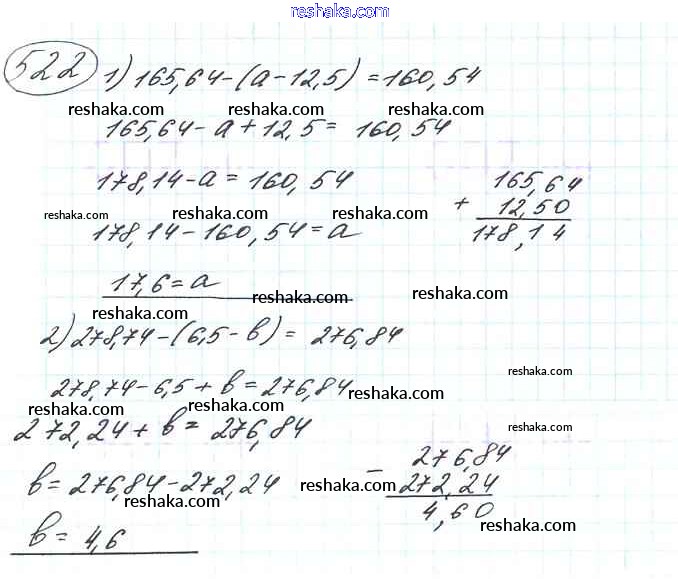 reshaka.com
522 1) 165,64-(a-12,5) = 160,54
reshaka.com reshaka.com reshaka.com
165,64-a+12,5= 160,54
178,14-a = 160,54
165,64
+ 12,50
178,14
reshaka.com reshaka.com reshaka.com reshaka.com
178,14-160,54=a
17,6=a
reshaka.com reshaka.com reshaka.com
2) 278,74-(6,5-b) = 276,84
reshaka.com
278,74-6,5+b=276,84
reshaka.com
reshaka.com reshaka.com
272,24+b= 276,84
reshaka.com
b=276,84-272,24
reshaka.com
276,84
- 272,24
4,60
reshaka.com
reshaka.com
b= 4,6